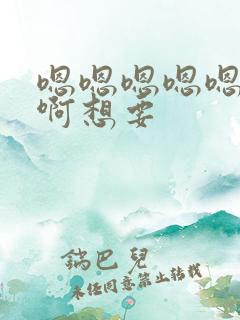 嗯嗯嗯嗯嗯
啊想要
鍋巴兒
未经同意禁止转载